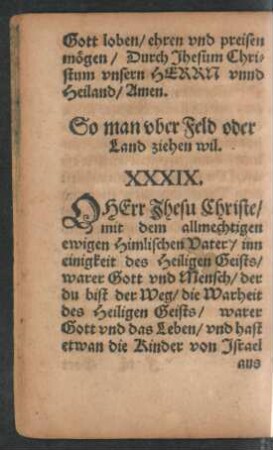 Gott loben/ ehren vnd preisen
mögen/ Durch Jhesum Chri-
stum vnsern HERRN vnnd
Heiland/ Amen.
So man vber Feld oder
Land ziehen wil.
XXXIX.
O HErr Jhesu Christe/
mit dem allmechtigen
ewigen Himlischen Vater/ inn
einigkeit des Heiligen Geists/
warer Gott vnd Mensch/ der
du bist der Weg/ die Warheit
des Heiligen Geists/ warer
Gott vnd das Leben/ vnd hast
etwan die Kinder von Israel
aus